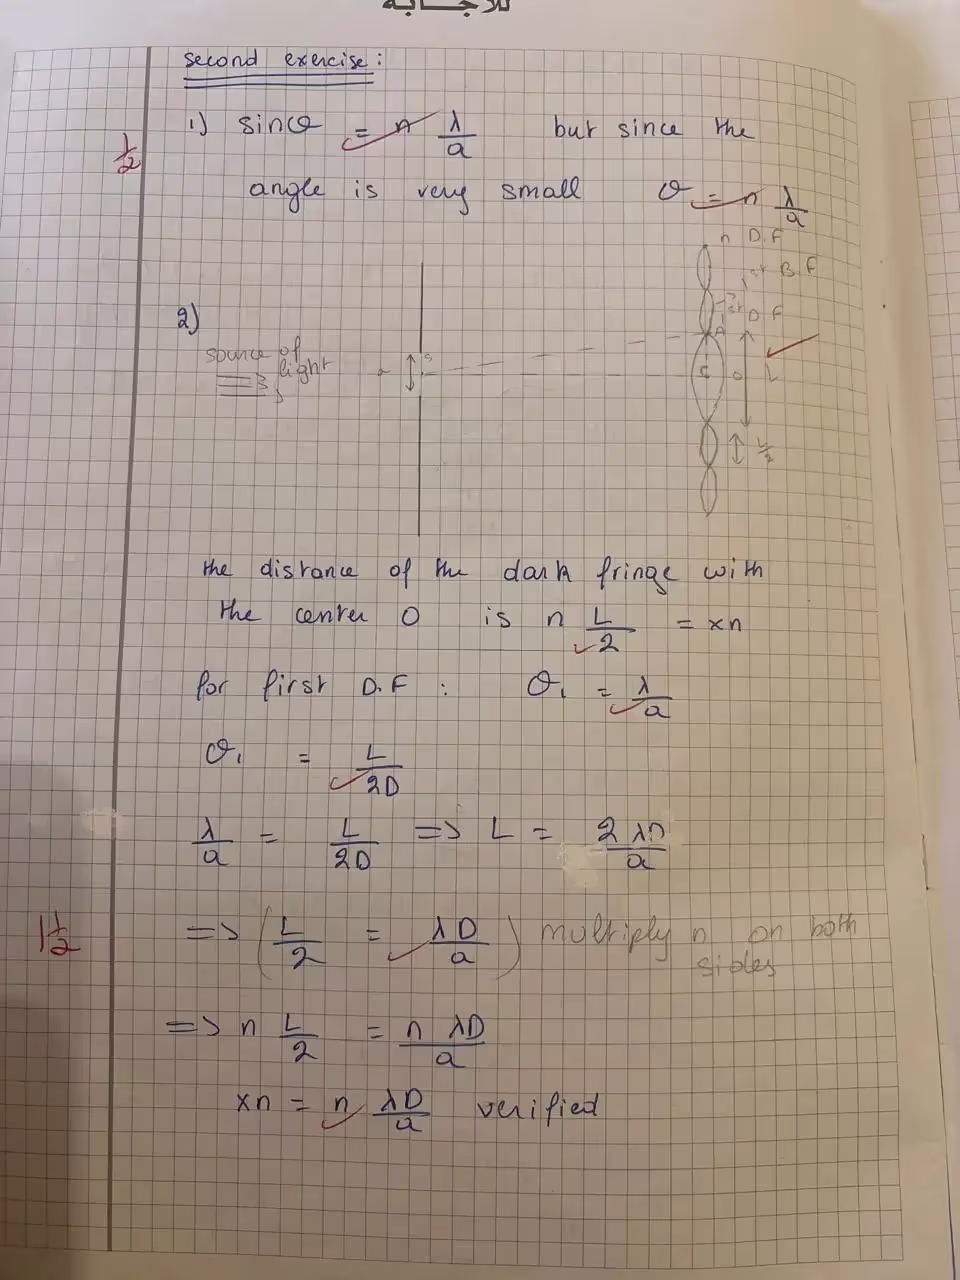 للاجـــابة
second exercise:
1) sinθ = n λ/a but since the
1/2
angle is very small θ = n λ/a
n D.F
1st B F
1st D F
2)
source of
light
a
A
O
L
L/2
the distance of the dark fringe with
the center O is n L/2 = xn
for first D.F : θ1 = λ/a
θ1 = L/2D
λ/a = L/2D => L = 2λD/a
1 1/2
=> (L/2 = λD/a) multiply n on both
sides
=> n L/2 = n λD/a
xn = n λD/a verified